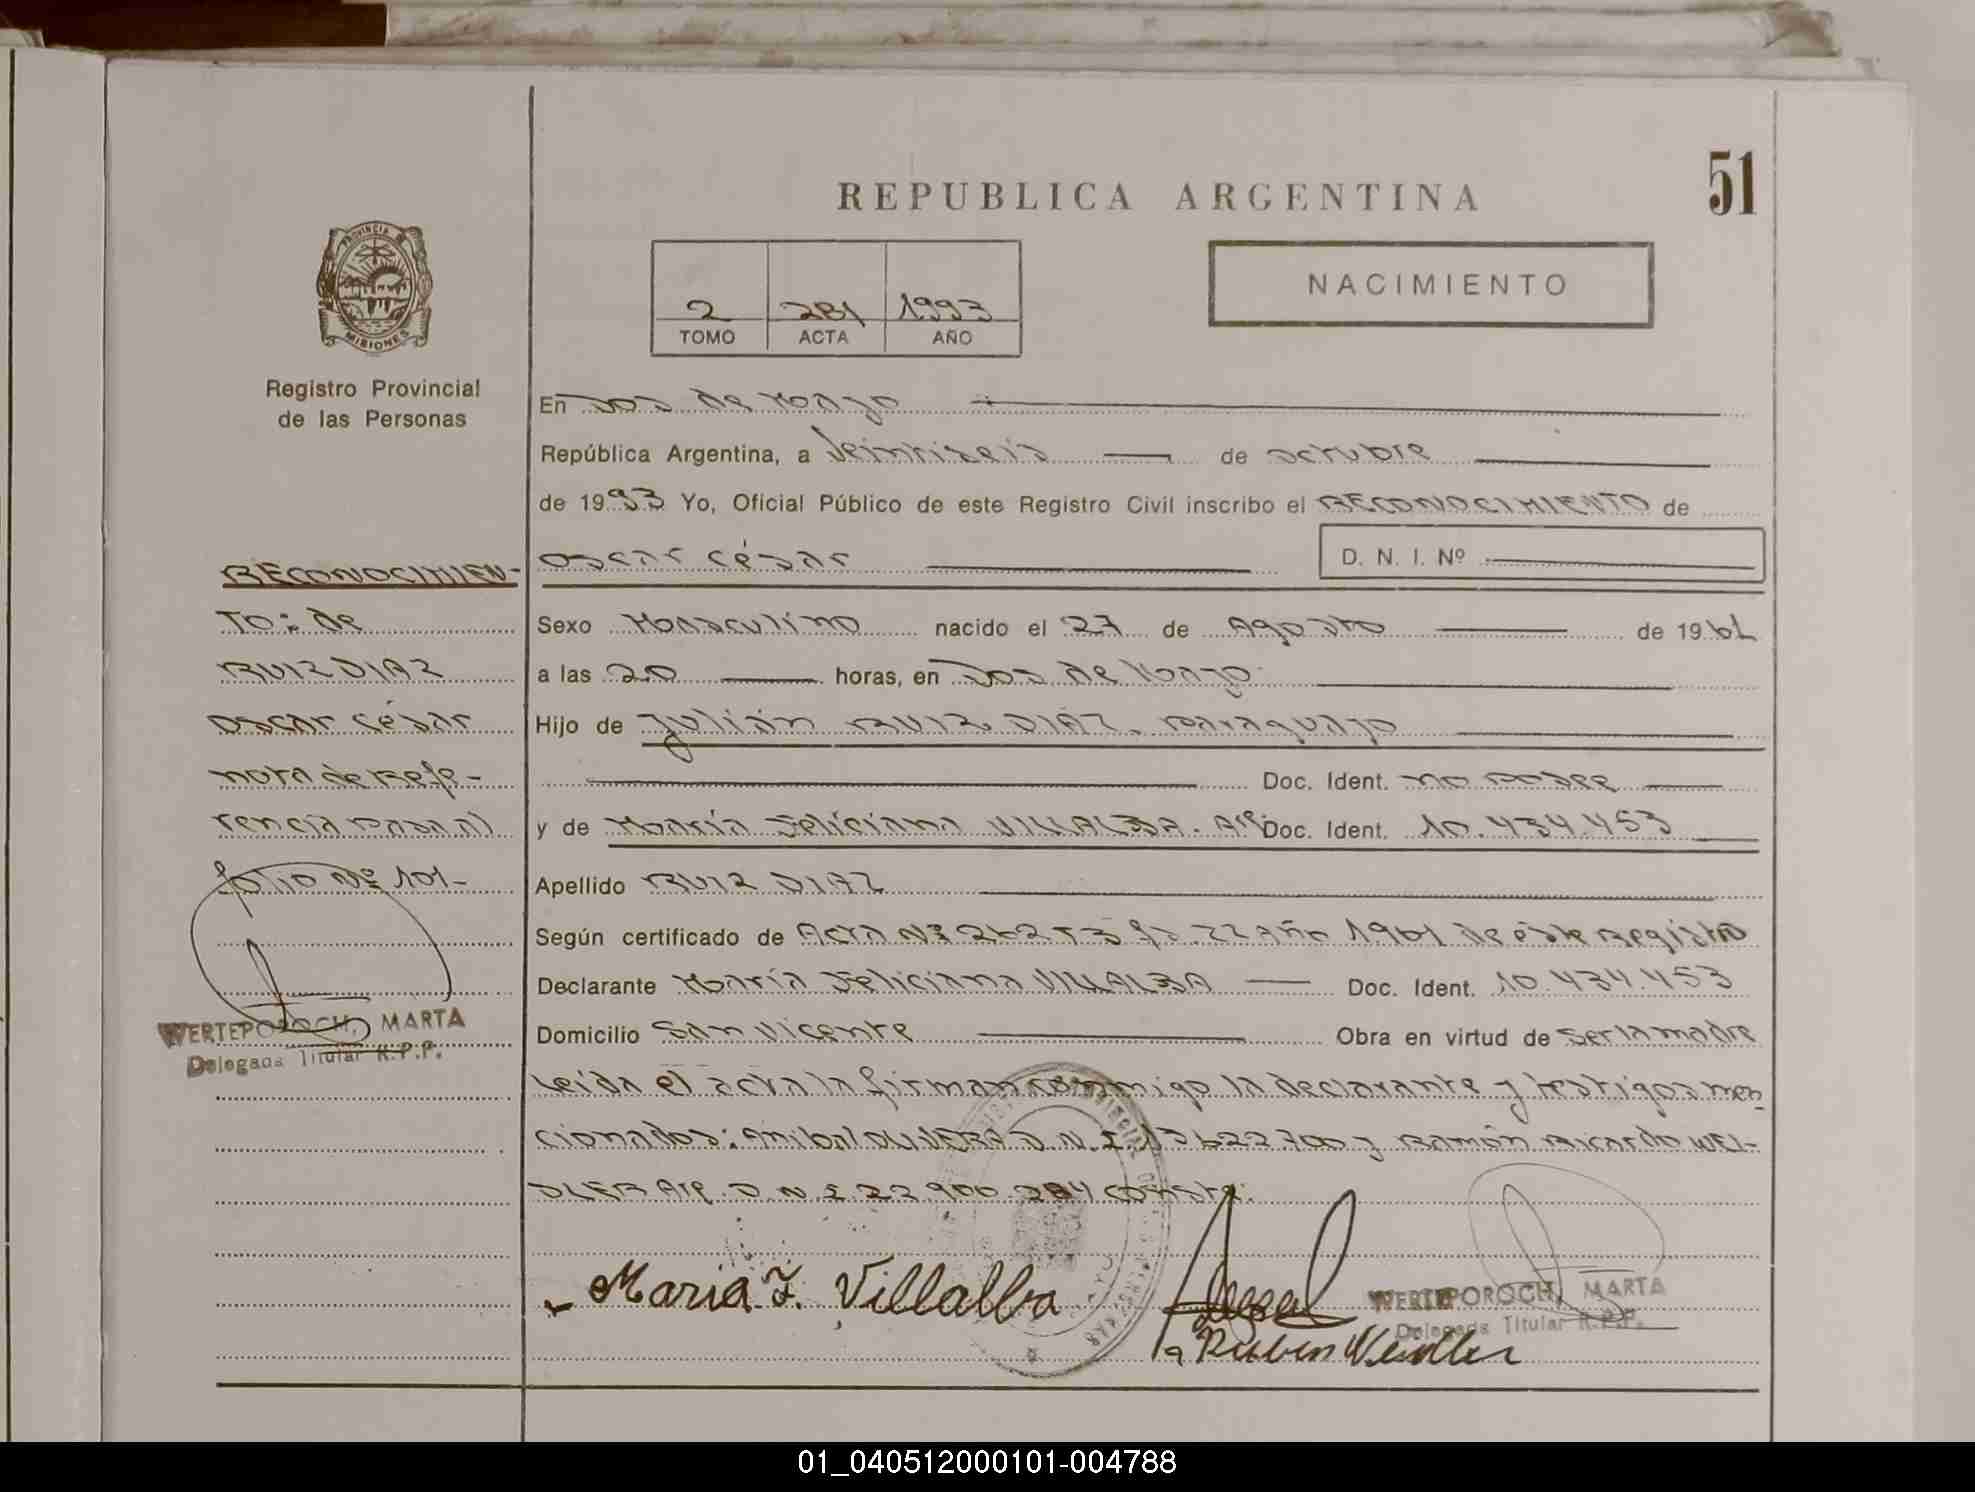 51
REPUBLICA ARGENTINA
NACIMIENTO
PROVINCIA DE
MISIONES
Registro Provincial
de las Personas
2 281 1993
TOMO ACTA AÑO
En Dos de Mayo
República Argentina, a veintiseis de octubre
de 1993 Yo, Oficial Público de este Registro Civil inscribo el RECONOCIMIENTO de
oscar césar D. N. I. Nº
Sexo Masculino nacido el 27 de Agosto de 1961
a las 20 horas, en Dos de Mayo
Hijo de Julián RUIZ DIAZ. Paraguayo
Doc. Ident. no posee
y de María Feliciana VILLALBA. Arg Doc. Ident. 10.434.453
Apellido RUIZ DIAZ
Según certificado de Acta Nº 262 T3 fº 22 Año 1961 de éste Registro
Declarante María Feliciana VILLALBA Doc. Ident. 10.434.453
Domicilio San Vicente Obra en virtud de ser la madre
Leída el acta la firman conmigo la declarante y testigos men
cionados: Anibal OLIVERA D.N.I 13622700 y Ramón Ricardo WEI-
DLER Arg. D N I 22 900 284 conste.
RECONOCIMIEN-
TO: de
RUIZ DIAZ
oscar césar
nota de Refe-
rencia pasa al
folio Nº 101-
WERTEPOROCH, MARTA
Delegada Titular R.P.P.
Maria F. Villalba
WERTEPOROCH, MARTA
Delegada Titular R.P.P.
01_040512000101-004788